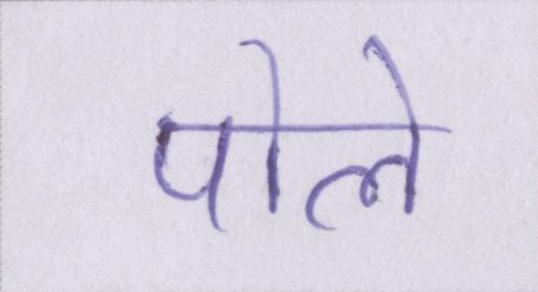 पोले